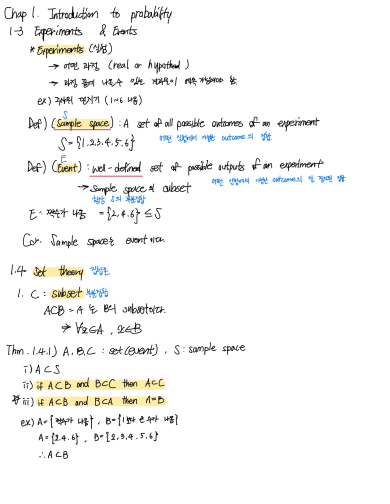 Chap 1. Introduction to probability
1-3 Experiments & Events
* Experiments (실험)
→ 어떤 과정 (real or hypothed)
→ 과정 중에 나올 수 있는 결과들이 예측 가능해야 함
ex) 주사위 던지기 (1~6 나옴)
S
Def) (Sample space) : A set of all possible outcomes of an experiment
S = {1, 2, 3, 4, 5, 6} 어떤 실험에서의 가능한 outcome의 집합
E
Def) (Event) : well-defined set of possible outputs of an experiment
→ Sample space의 subset 어떤 실험에서의 가능한 outcomes의 잘 정의된 집합
S의 부분집합
E : 짝수가 나옴 = {2, 4, 6} ⊆ S
Cor. Sample space는 event이다.
1.4 Set theory 집합론
1. ⊂ : subset 부분집합
A⊂B = A 는 B의 subset이다.
→ ∀x∈A, x∈B
Thm. 1.4.1) A, B, C : set (event), S : sample space
i) A⊂S
ii) if A⊂B and B⊂C then A⊂C
* iii) if A⊂B and B⊂A then A=B
ex) A = {짝수가 나옴}, B = {1보다 큰 수가 나옴}
A = {2, 4, 6}, B = {2, 3, 4, 5, 6}
∴ A⊂B